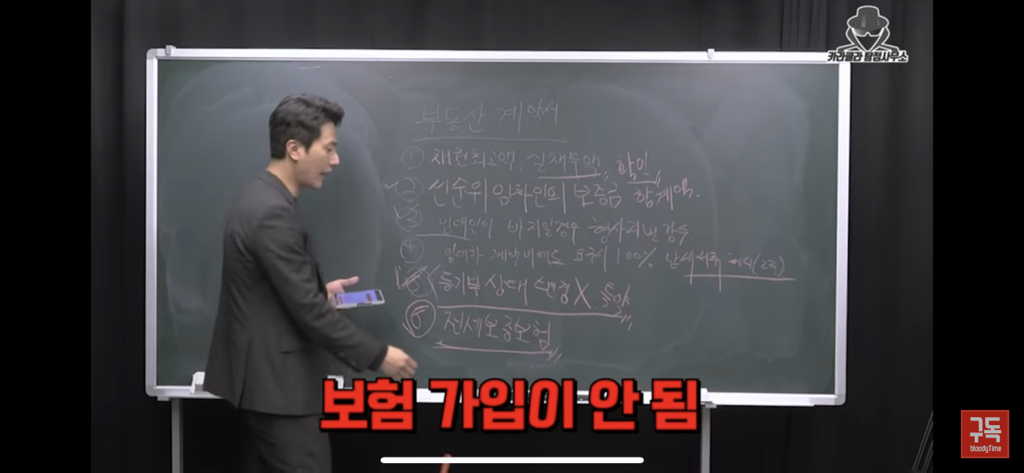 카라큘라 탐정사무소
부동산 계약서
① 채권최고액, 실채무액, 확인
② 선순위 임차인의 보증금 합계액.
③ 임대인이 바지일경우 형사처벌 감수
④ 임차인 계약 100% 날
⑤ 등기부 상태 변경 X 특약
⑥ 전세보증보험
보험 가입이 안 됨
구독
bloodyTime